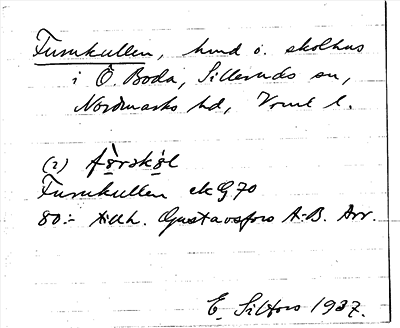 Furukullen, hmd o. skolhus
i Ö. Boda, Silleruds sn,
Nordmarks hd, Vrml l.
(2)
Furukullen ek G70
80:- tillh. Gustavsfors A-B. Arr.
E. Sillfors 1937.